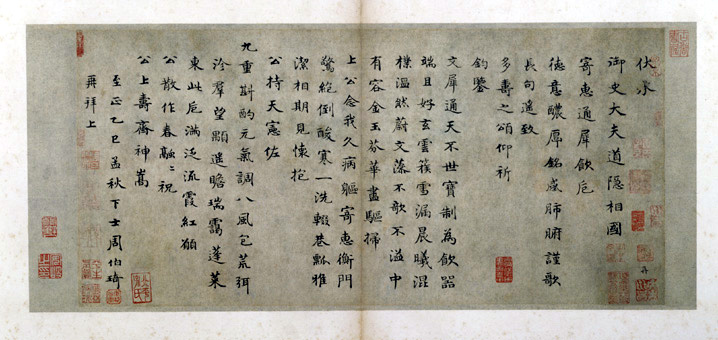 伏承
御史大夫道隱相國
寄惠通犀飲卮
德意醲厚銘感肺腑謹歌
長句遙致
多壽之頌仰祈
鈞鑒
文犀通天不世寶制為飲器
端且好玄雲蔟雪漏晨曦混
樸溫然蔚文藻不歌不溢中
有容金玉芬華盡驅掃
上公念我久病軀寄惠衡門
驚絕倒酸寒一洗輟巷瓢雅
潔相期見懷抱
公持天憲佐
九重斟酌元氣調八風包荒弭
沴羣望顯遙瞻瑞靄蓬萊
東此卮滿泛流霞紅願
公散作春融二祝
公上壽齋神嵩
至正乙巳孟秋下士周伯琦
再拜上